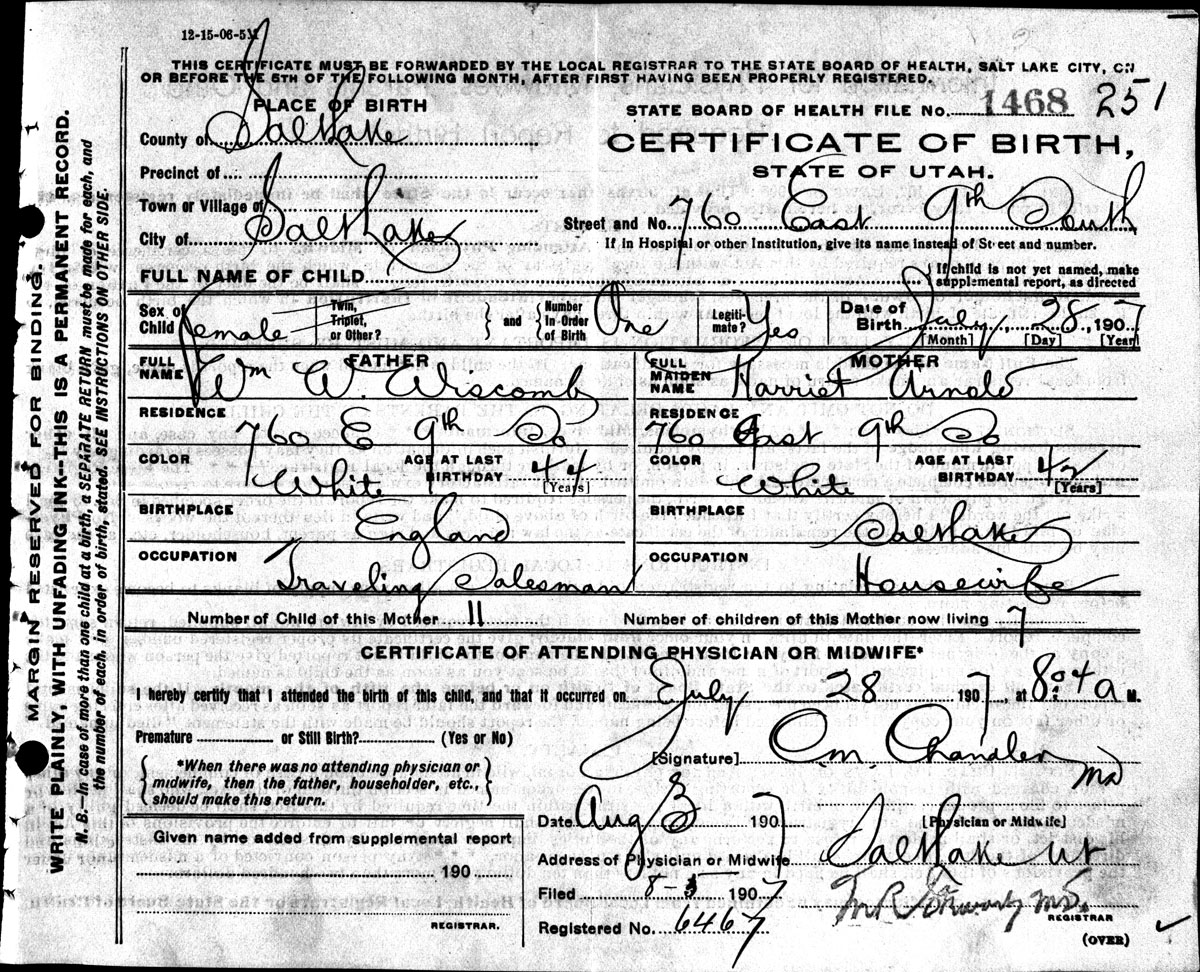 12-15-06-5M
THIS CERTIFICATE MUST BE FORWARDED BY THE LOCAL REGISTRAR TO THE STATE BOARD OF HEALTH, SALT LAKE CITY, ON
OR BEFORE THE 5TH OF THE FOLLOWING MONTH, AFTER FIRST HAVING BEEN PROPERLY REGISTERED.
PLACE OF BIRTH
STATE BOARD OF HEALTH FILE No. 1468 251
County of Salt Lake
CERTIFICATE OF BIRTH,
STATE OF UTAH.
Precinct of
Town or Village of
City of Salt Lake
Street and No. 760 East 9th South
If in Hospital or other Institution, give its name instead of Street and number.
FULL NAME OF CHILD
{ If child is not yet named, make
supplemental report, as directed
Sex of Child Female
Twin, Triplet, or Other? } and { Number In Order of Birth One
Legiti-mate? Yes
Date of Birth July 28, 1907
[Month] [Day] [Year]
FATHER
FULL NAME Wm W. Wiscomb
RESIDENCE 760 E 9th So
COLOR White AGE AT LAST BIRTHDAY 44 [Years]
BIRTHPLACE England
OCCUPATION Traveling Salesman
MOTHER
FULL MAIDEN NAME Harriet Arnold
RESIDENCE 760 East 9th So
COLOR White AGE AT LAST BIRTHDAY 42 [Years]
BIRTHPLACE Salt Lake
OCCUPATION Housewife
Number of Child of this Mother 11 Number of children of this Mother now living 7
CERTIFICATE OF ATTENDING PHYSICIAN OR MIDWIFE*
I hereby certify that I attended the birth of this child, and that it occurred on July 28 1907, at 8:04 a M.
Premature or Still Birth? (Yes or No)
{ *When there was no attending physician or
midwife, then the father, householder, etc.,
should make this return. }
[Signature] O.M. Chandler MD
[Physician or Midwife]
Date Aug 3 190
Address of Physician or Midwife Salt Lake Ut
Given name added from supplemental report
190
REGISTRAR.
Filed 8-5 1907
M R Stewart M.D.
REGISTRAR
Registered No. 6467
(OVER)
MARGIN RESERVED FOR BINDING.
WRITE PLAINLY, WITH UNFADING INK--THIS IS A PERMANENT RECORD.
N. B.—In case of more than one child at a birth, a SEPARATE RETURN must be made for each, and
the number of each, in order of birth, stated. SEE INSTRUCTIONS ON OTHER SIDE.